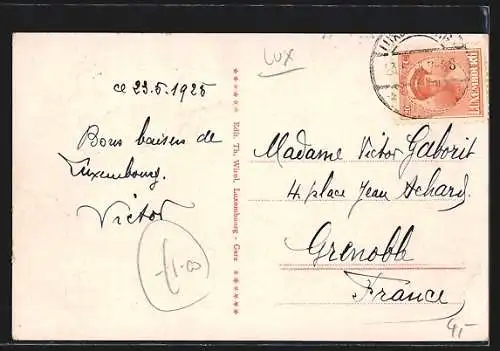 LUX
ce 23.5.1925
Bons baisers de
Luxembourg.
Victor
£1.00
Edit. Th. Wirol, Luxembourg - Gare
Madame Victor Gaborit
4. place Jean Achard.
Grenoble
France
4,-
LUXEMBOURG